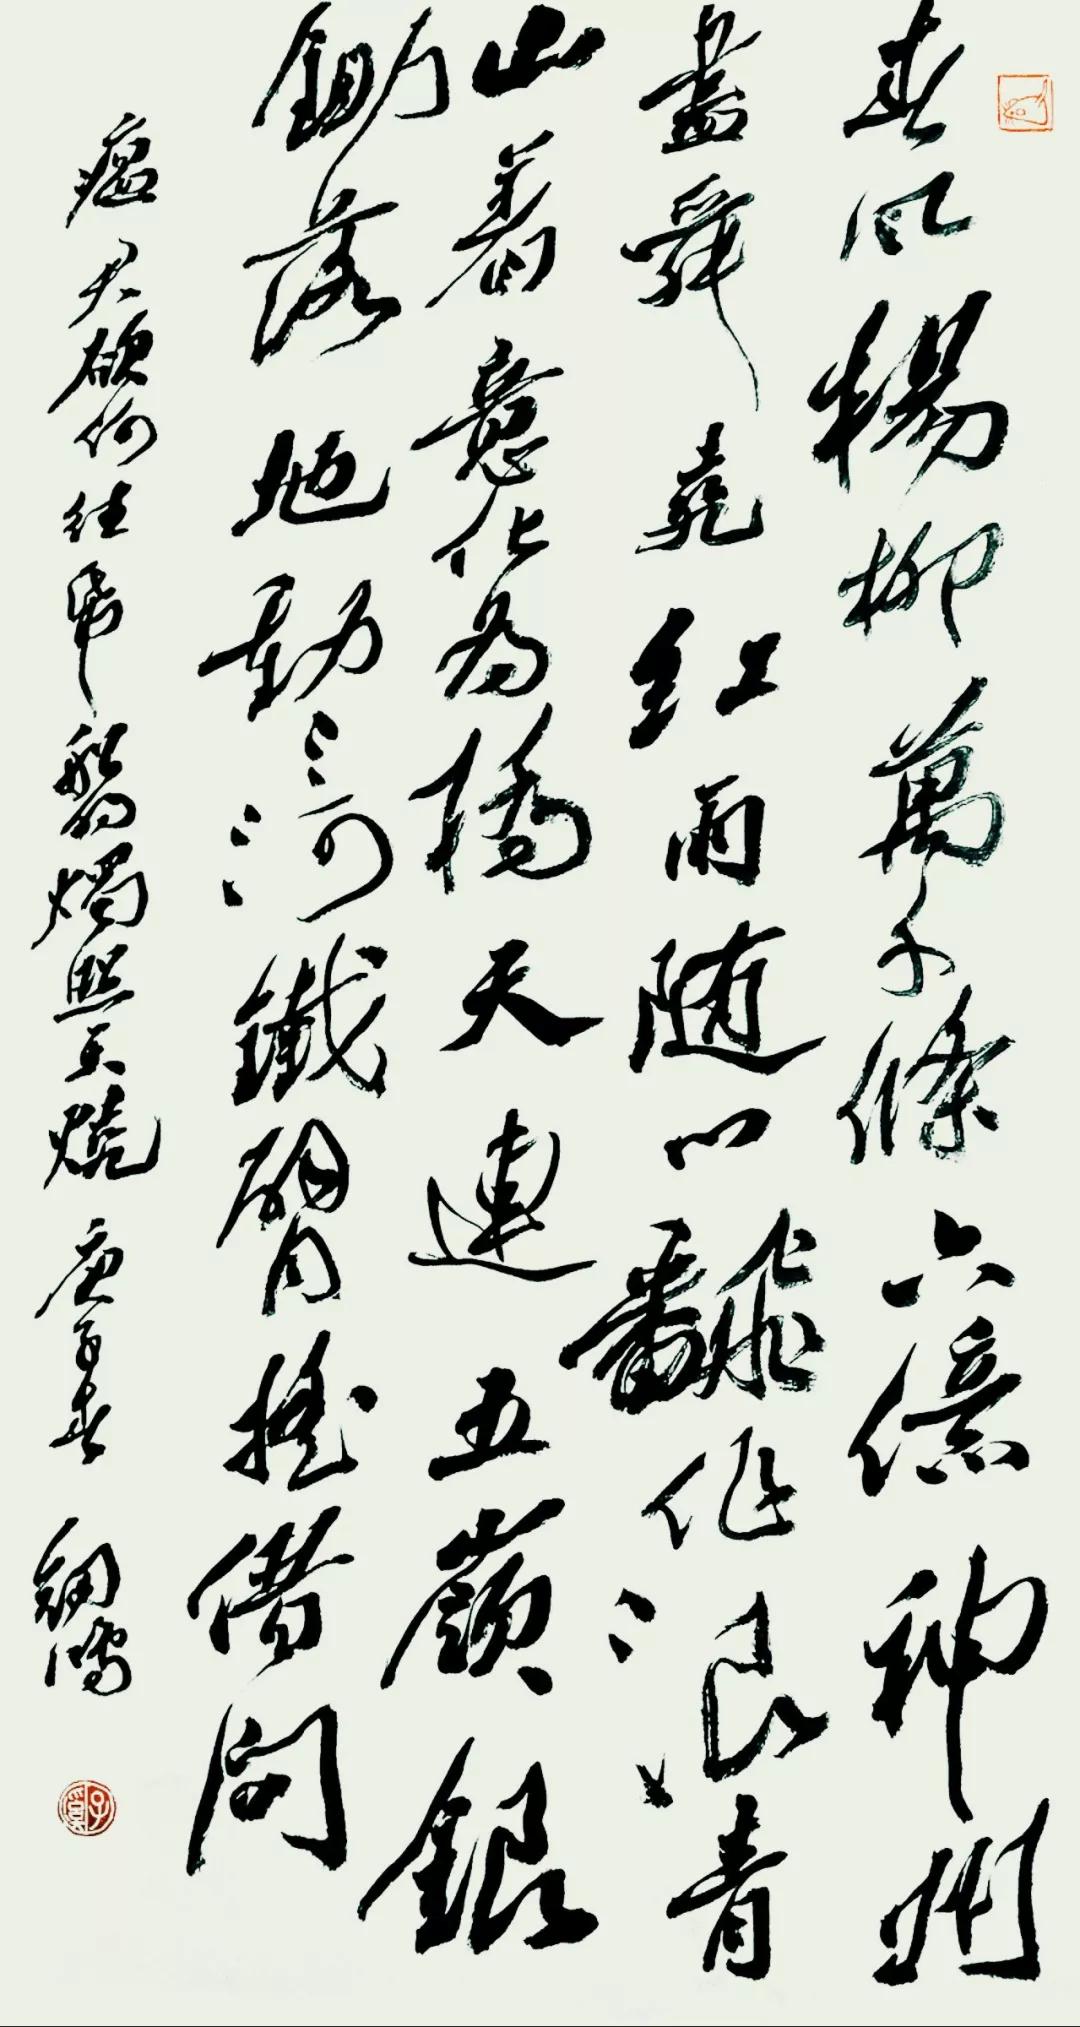 春風楊柳萬千條六億神州
盡舜堯紅雨随心飜作浪青
山着意化為橋天連五嶺銀
鋤落地動三河鐵臂搖借問
瘟君欲何往帋船明燭照天燒 庚子春